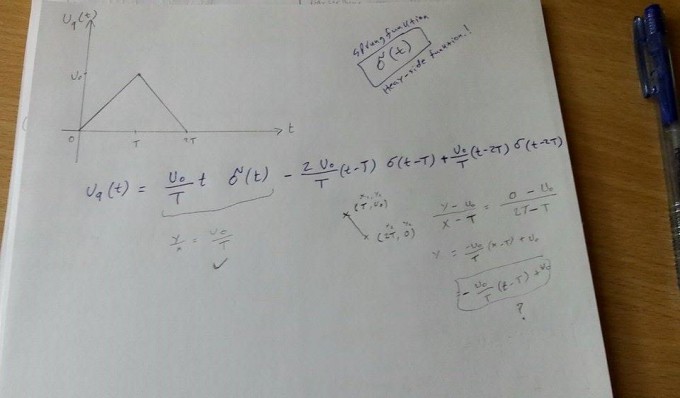 U₉(t)
U₀
0
T
2T
t
Sprungfunktion
σ(t)
Heavy-side funktion!
U₉(t) = U₀/T t σ(t) − 2U₀/T (t−T) σ(t−T) + U₀/T (t−2T) σ(t−2T)
y/x = U₀/T
✓
(T, U₀)
(2T, 0)
y − U₀ / x − T = 0 − U₀ / 2T − T
y = −U₀/T (x−T) + U₀
− U₀/T (t−T) + U₀
?